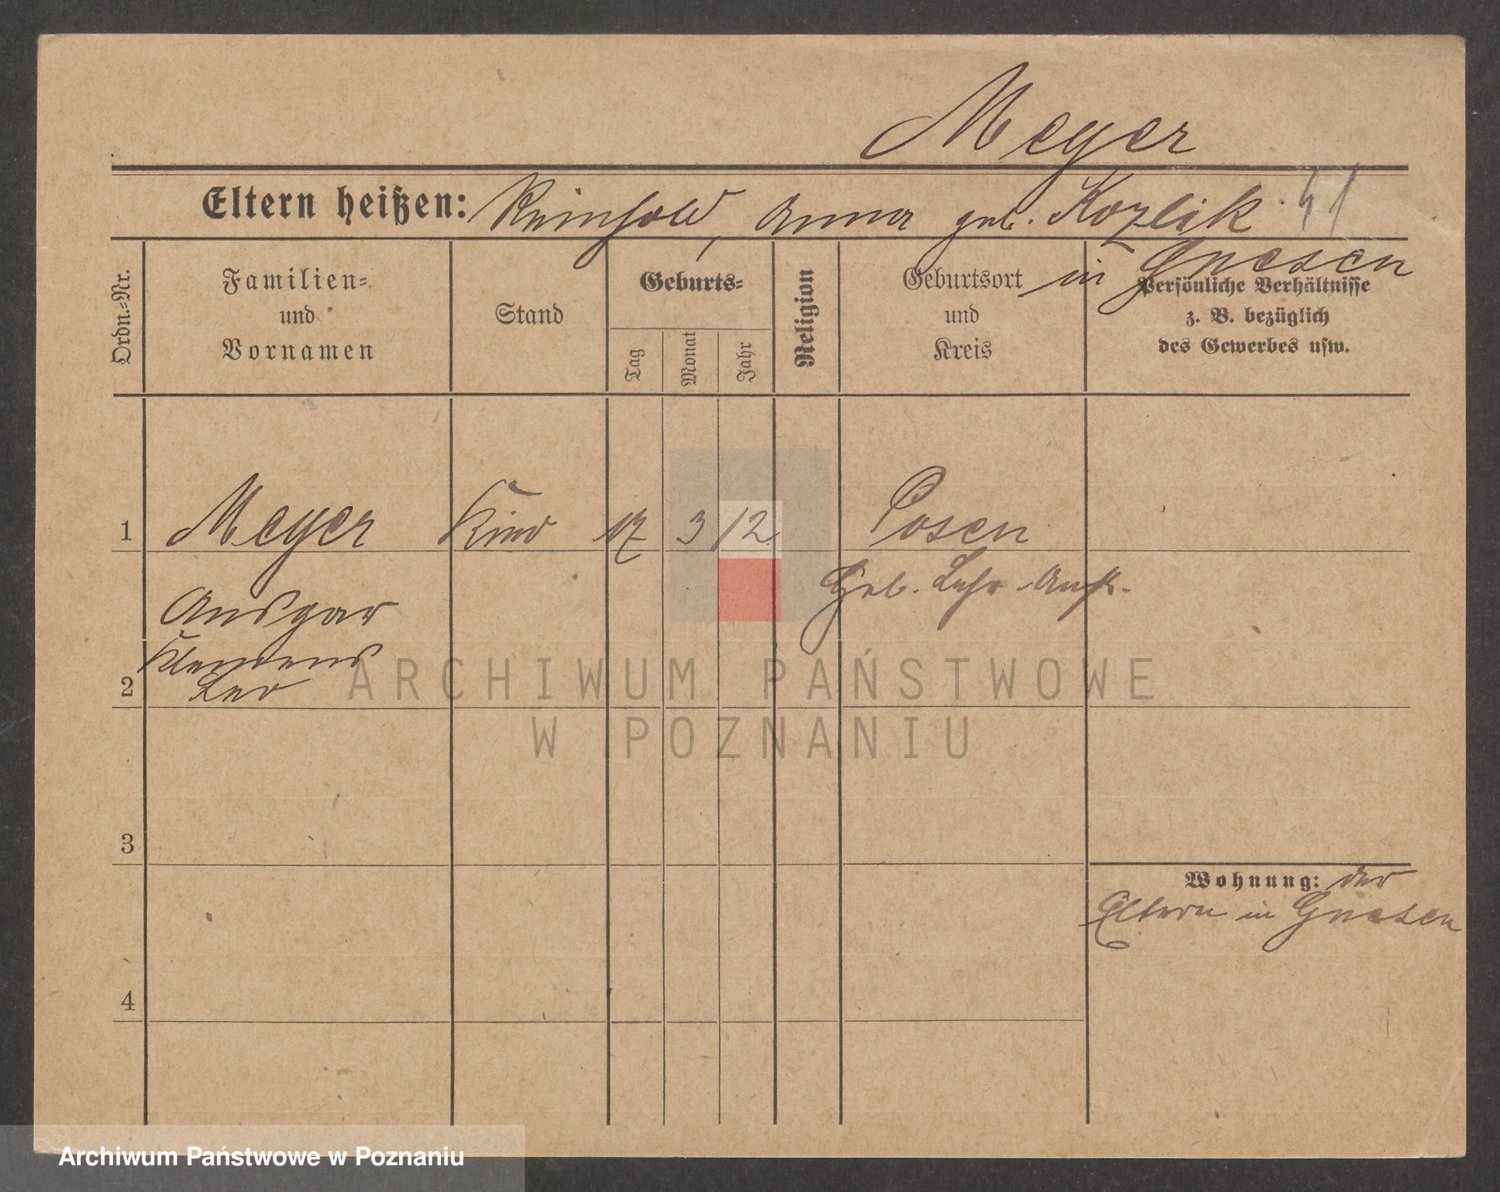 Meyer
Eltern heißen: Reinhold, Anna geb. Kozlik
in Gnesen
Ordn.-Nr.
Familien-
und
Vornamen
Stand
Geburts-
Tag
Monat
Jahr
Religion
Geburtsort
und
Kreis
Persönliche Verhältnisse
z. B. bezüglich
des Gewerbes usw.
1 Meyer Kind 17 3 12 Posen
Geb. Lehr-Anst.
Ansgar
Klemens
2 Leo
ARCHIWUM PAŃSTWOWE
W POZNANIU
3
Wohnung: der
Eltern in Gnesen
4
Archiwum Państwowe w Poznaniu